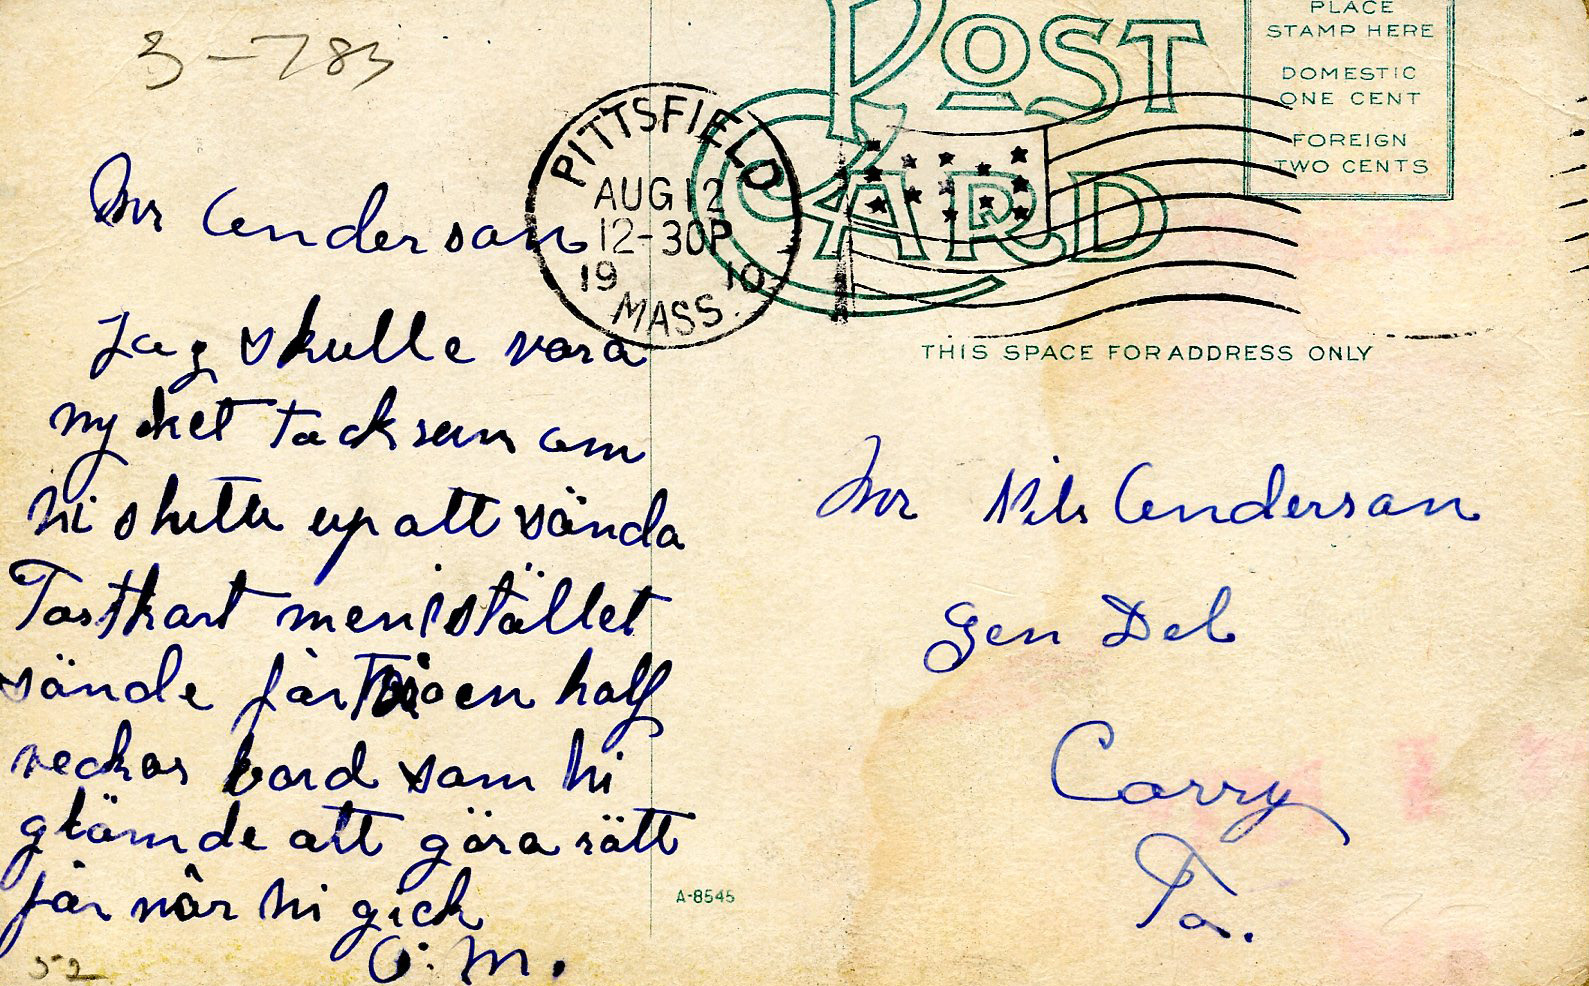 3-783
POST
CARD
PLACE
STAMP HERE
DOMESTIC
ONE CENT
FOREIGN
TWO CENTS
PITTSFIELD
AUG 12
12-30P
19 10
MASS.
THIS SPACE FOR ADDRESS ONLY
Mr Anderson
Jag skulle vara
mycket tacksam om
ni slutte up att sända
Postkart men istället
sände för en half
veckas bord som ni
glömde att göra rätt
för när ni gick
O. M.
52
A-8545
Mr Nils Anderson
Gen Del
Corry
Pa.